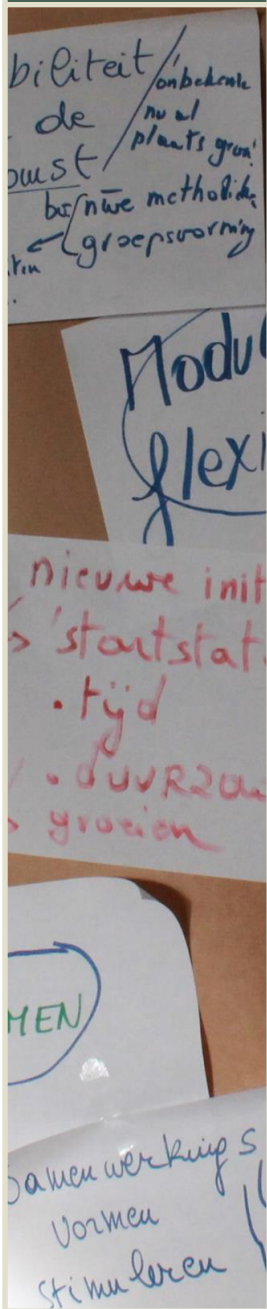 biliteit / onbekende
de nu al
plaats
bij nwe methodiek
groepsvorming
Modul
flexi
nieuwe init
startstat
. tijd
. duurzaa
groeien
MEN
Samenwerkings
vormen
stimuleren